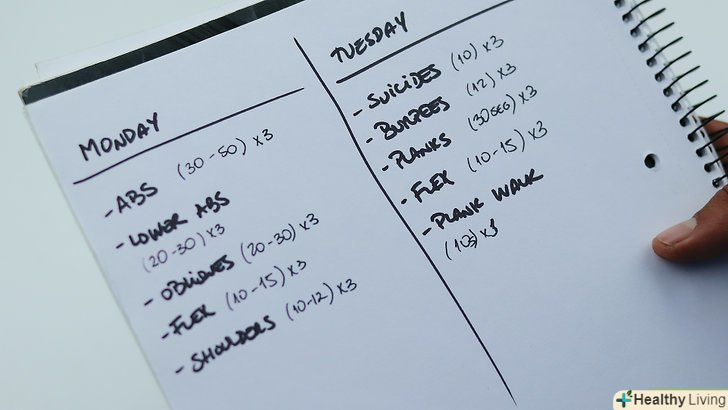 MONDAY
- ABS (30-50) x3
- LOWER ABS
(20-30) x3
- OBLIQUES (20-30) x3
- FLEX (10-15) x3
- SHOULDERS (10-12) x3
TUESDAY
- SUICIDES (10) x3
- BURPEES (12) x3
- PLANKS (30SEG) x3
- FLEX (10-15) x3
- PLANK WALK
Healthy Living